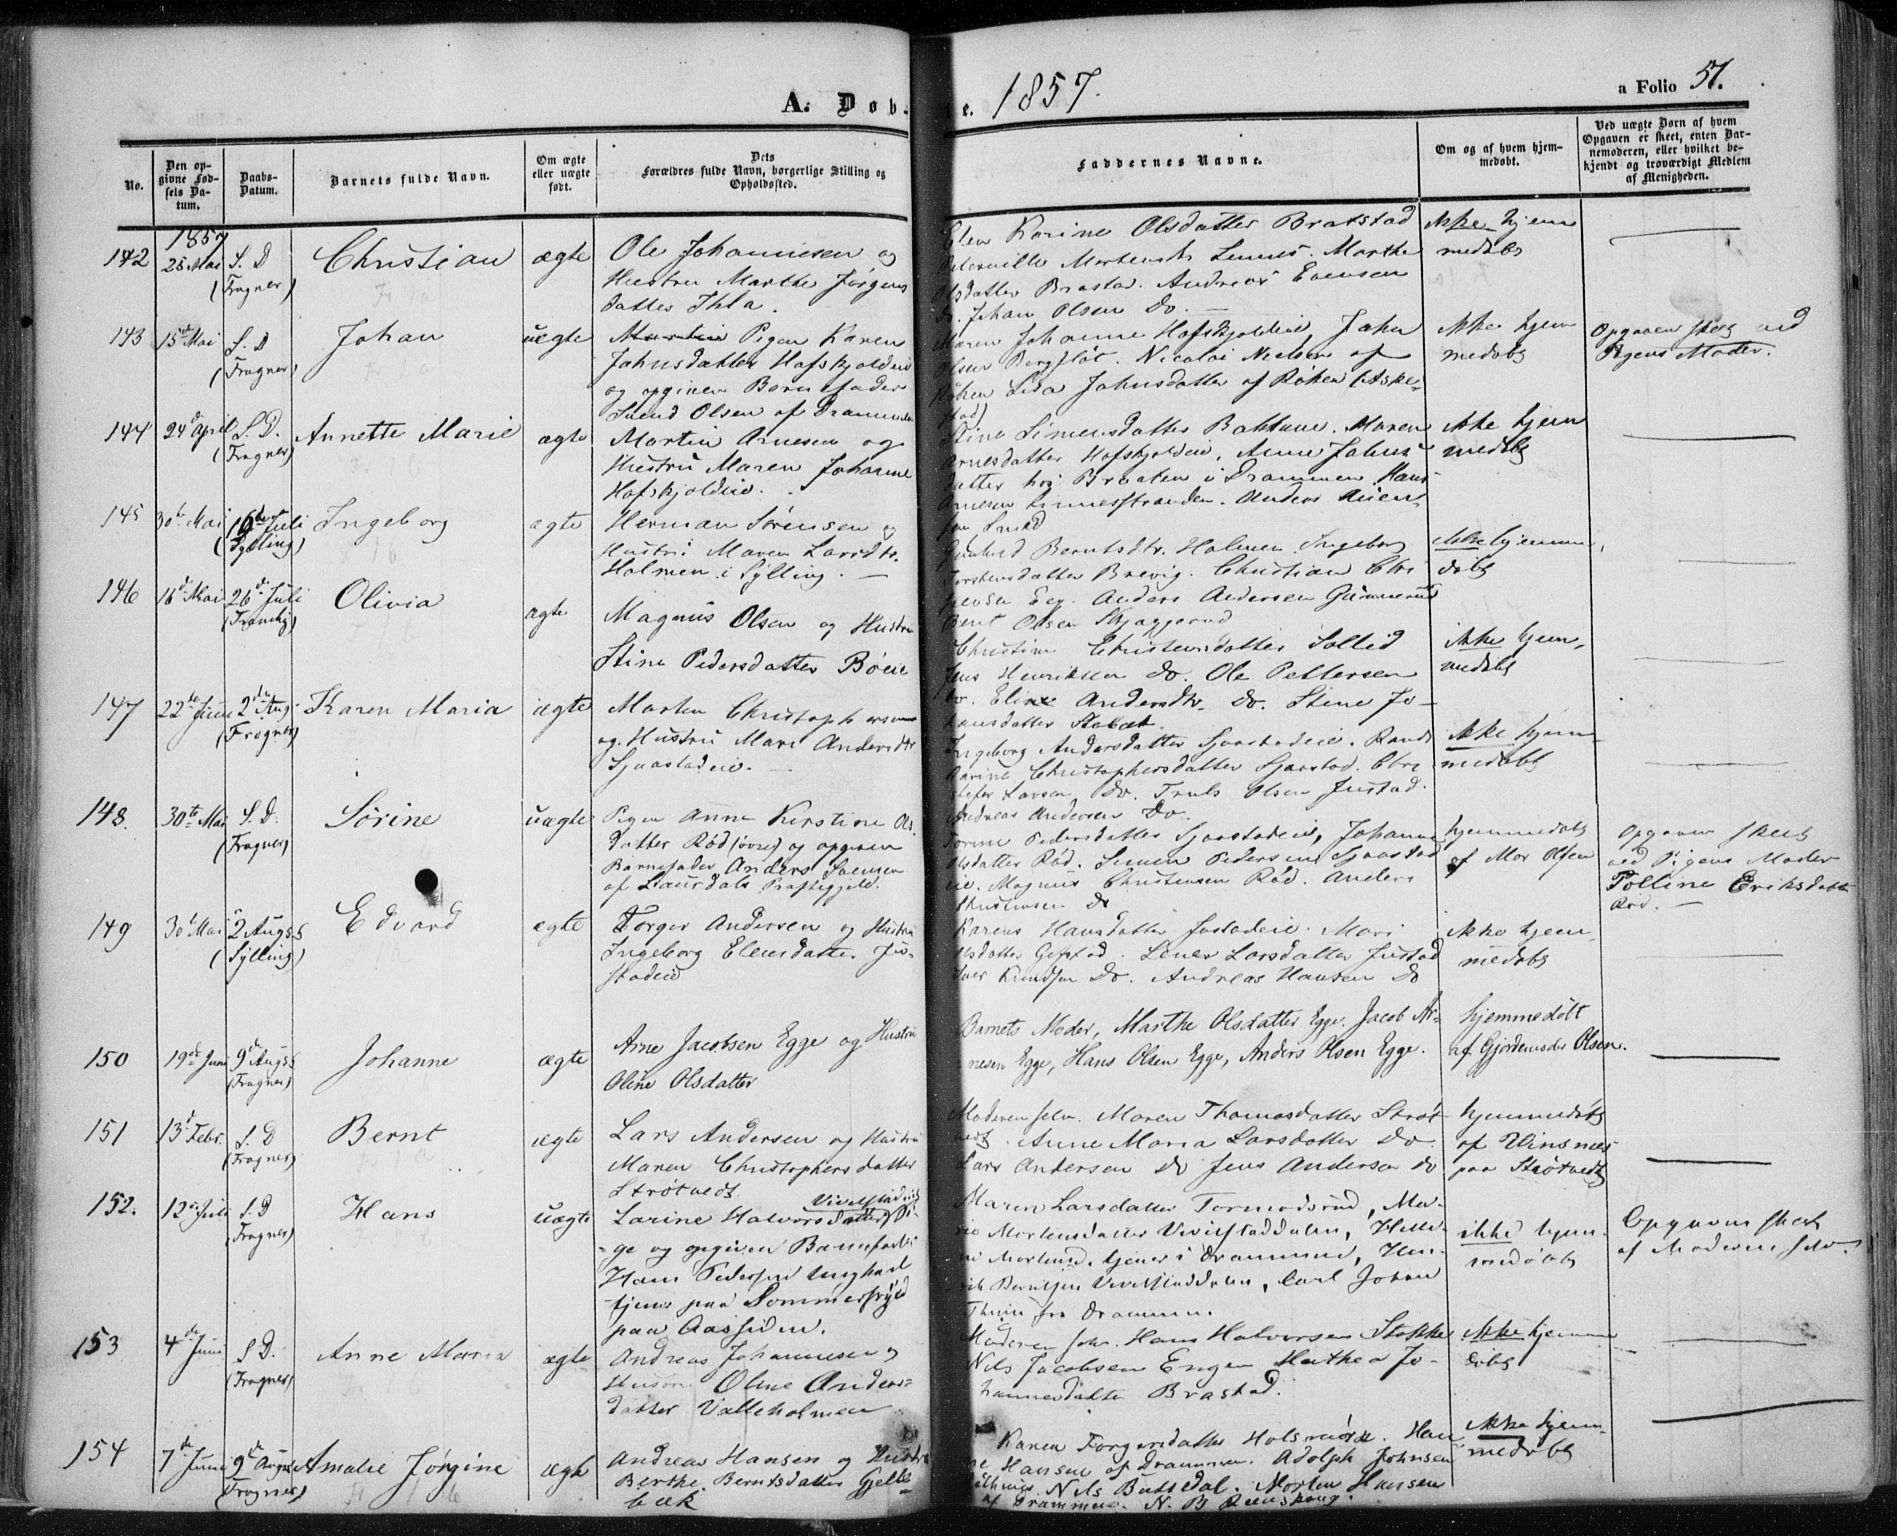 A. Døb-
te. 1857.
a Folio 51.
No.
Den op-
givne Fød-
sels Da-
tum.
Daabs-
Datum.
Barnets fulde Navn.
Om ægte
eller uægte
født.
Dets
Forældres fulde Navn, borgerlige Stilling og
Opholdssted.
Faddernes Navne.
Om og af hvem hjem-
medøbt.
Ved uægte Børn af hvem
Opgaven er skeet, enten Bar-
nemoderen, eller hvilket be-
kjendt og troværdigt Medlem
af Menigheden.
1857
142 28 Mai S. D (Frogner) Christian ægte
Ole Johannesen og
Hustru Marthe Jørgens
datter Ihla.
Karine Olsdatter Bratstad
Mortensdtr Linnes. Marthe
Olsdatter Brastad. Andreas Evensen
do. Johan Olsen do.
ikke hjem
medøbt
143 15de Mai S. D (Frogner) Johan uægte
Pigen Karen
Johnsdatter Hofskjoldeie
og opgiven Barnefader
Svend Olsen af Drammen
Maren Johanne Hofskjoldeie, John
Olsen Bergfløt. Nicolai Nielsen af
Røken Lisa Johnsdatter af Røken (Aske-
stad)
ikke hjem
medøbt
Opgaven skeet ved
Pigens Moder.
144 24de April S. D. (Frogner) Annette Marie ægte
Martin Arnesen og
Hustru Maren Johanne
Hofskjoldeie.
Stine Simensdatter Bakkene. Maren
Arnesdatter Hofskjoldeie, Anne Johns
datter hos Braaten i Drammen Hans
Arnesen Linnesstranden. Anders
ikke hjem
medøbt
145 30te Mai 16de Juli (Sylling) Ingeborg ægte
Herman Sørensen og
Hustru Maren Larsdtr.
Holmen i Sylling.
Gunhild Berntsdtr. Holmen. Ingeborg
Torstensdatter Brevig. Christian Chri
stensen Eeg. Anders Andersen Gunnerud
Bent Olsen Skjaggerud
ikke hjemme
døbt
146 16d Mai 26d Juli (Tranby) Olivia ægte
Magnus Olsen og Hustru
Stine Pedersdatter Bøeie
Christine Christensdatter Solled
Jens Henriksen do. Ole Pettersen
do. Eline Andersdtr. do. Stine Jo-
hansdatter Stabæk
ikke hjem,
medøbt
147 22de Juni 2den Aug. (Frogner) Karen Maria ægte
Morten Christophersen
og Hustru Mari Andersdtr
Sjaastadeie.
Ingeborg Andersdatter Sjaastadeie. Randi
Karine Christophersdatter Sjaastad. Chri
stofer Larsen do. Truls Olsen Justad.
Andreas Andersen do.
ikke hjem
medøbt
148. 30te Mai S. D. (Frogner) Sørine uægte
Pigen Anne Kirstine Ols
datter Rød (øvre) og opgiven
Barnefader Anders Svensen
af Laurdals Præstegjeld.
Torine Pedersdatter Sjaastadeie, Johanne
Olsdatter Rød. Simen Pedersen Sjaastad
eie. Magnus Christensen Rød. Anders
Christensen do
hjemmedøbt
af Mor Olsen
Opgaven skeet
ved Pigens Moder
Polline Eriksdatter
Rød.
149 30d Mai 2 Augst (Sylling) Edvard ægte
Torger Andersen og Hustru
Ingeborg Elensdatter Ju-
stadeie
Karens Hansdatter Justadeie. Mari
Olsdatter Gofstad. Lener Larsdatter Justad
Iver Knudsen do. Andreas Hansen do
ikke hjem
medøbt
150 19de Juni 9d Augst (Frogner) Johanne ægte
Arne Jacobsen Egge og Hustru
Oline Olsdatter
Barnets Moder, Marthe Olsdatter Egge. Jacob Ar-
nesen Egge, Hans Olsen Egge, Anders Olsen Egge.
hjemmedøbt
af Gjordemoder Olsen.
151 13d Febr. S. D (Frogner) Bernt ægte
Lars Andersen og Hustru
Maren Christophersdatter
Strøtvedt
Moderen selv. Maren Thomasdatter Strøt
vedt. Anne Maria Larsdatter do
Lars Andersen do Jens Andersen do
hjemmedøbt
af Vinsnes
paa Strøtvedt
152. 12d Juli S. D (Frogner) Hans uægte
Vivelstadeie
Larine Halvorsdatter Pi-
ge og opgiven Barnefader
Hans Pedersen ungkarl
tjener paa Sommerfryd
paa Aassiden.
Maren Larsdatter Tormodsrud, Ma-
rie Mortensdatter Vivelstaddalen, Helle-
ne Mortensd. tjener i Drammen, Hen-
rik Berntsen Vivelstaddalen, Carl Johan
Thune fra Drammen.
ikke hjem-
medøbt
Opgaven skeet
af Moderen selv.
153 4de Juni S D. (Frogner) Anne Maria ægte
Andreas Johannesen og
Hustru Oline Anders-
datter Valleholmen
Moderen selv. Hans Halvorsen Stokke
Nils Jacobsen Engen Mathea Jo-
hannesdatter Brastad.
ikke hjemme
døbt
154 7de Juni 9de Augst (Frogner) Amalie Jørgine ægte
Andreas Hansen og Hustru
Berthe Berntsdatter Gjelle-
bæk
Karen Torgersdatter Holsmørk. Han
ne Hansen af Drammen. Adolph Johnsen
Nils Buttedal. Morten Hansen
af Drammen. N. B
ikke hjem-
medøbt